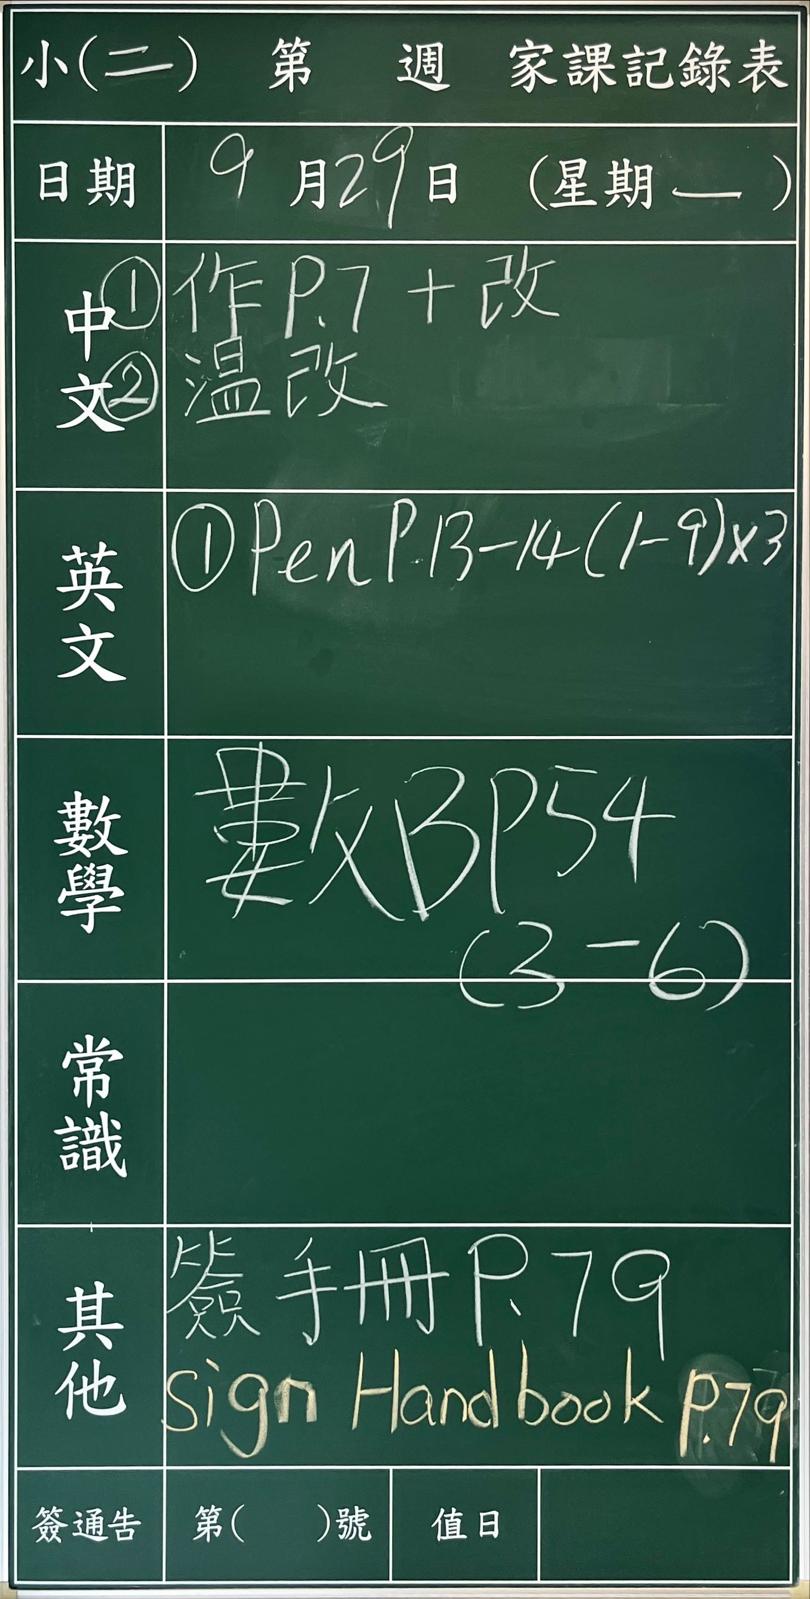 小(二) 第 週 家課記錄表
日期 9月29日 (星期一)
中文 ①作P.7+改
②温改
英文 ①Pen P.13-14(1-9)x3
數學 數BP54
(3-6)
常識
其他 簽手冊P.79
Sign Handbook P.79
簽通告 第( )號 值日